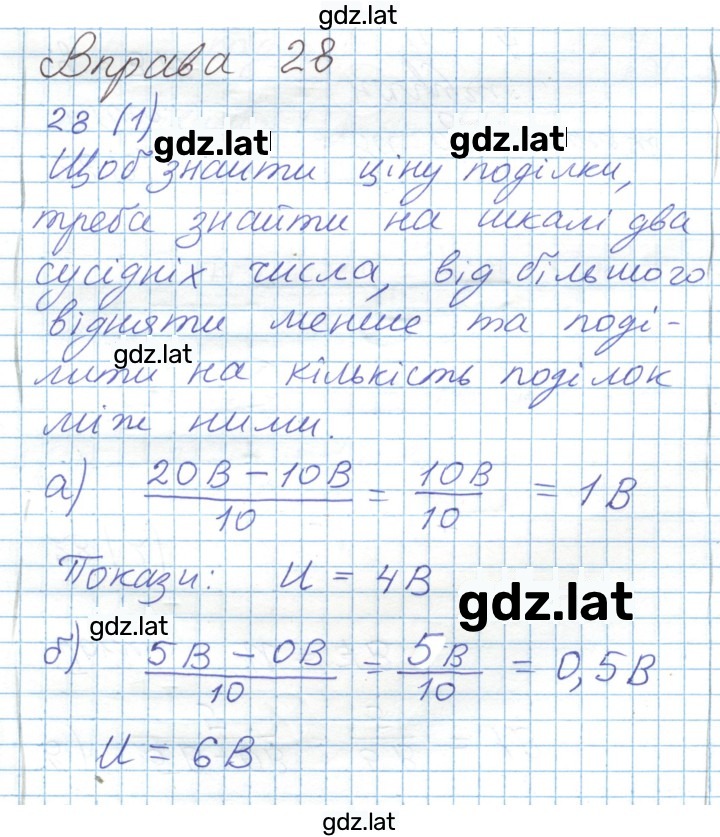 gdz.lat
Вправа 28
28 (1)
gdz.lat
gdz.lat
Щоб знайти ціну поділки,
треба знайти на шкалі два
сусідніх числа, від більшого
відняти менше та поді-
gdz.lat
лити на кількість поділок
між ними.
а) (20В – 10В)/10 = 10В/10 = 1В
Покази: U = 4В
gdz.lat
gdz.lat
б) (5В – 0В)/10 = 5В/10 = 0,5В
U = 6В
gdz.lat